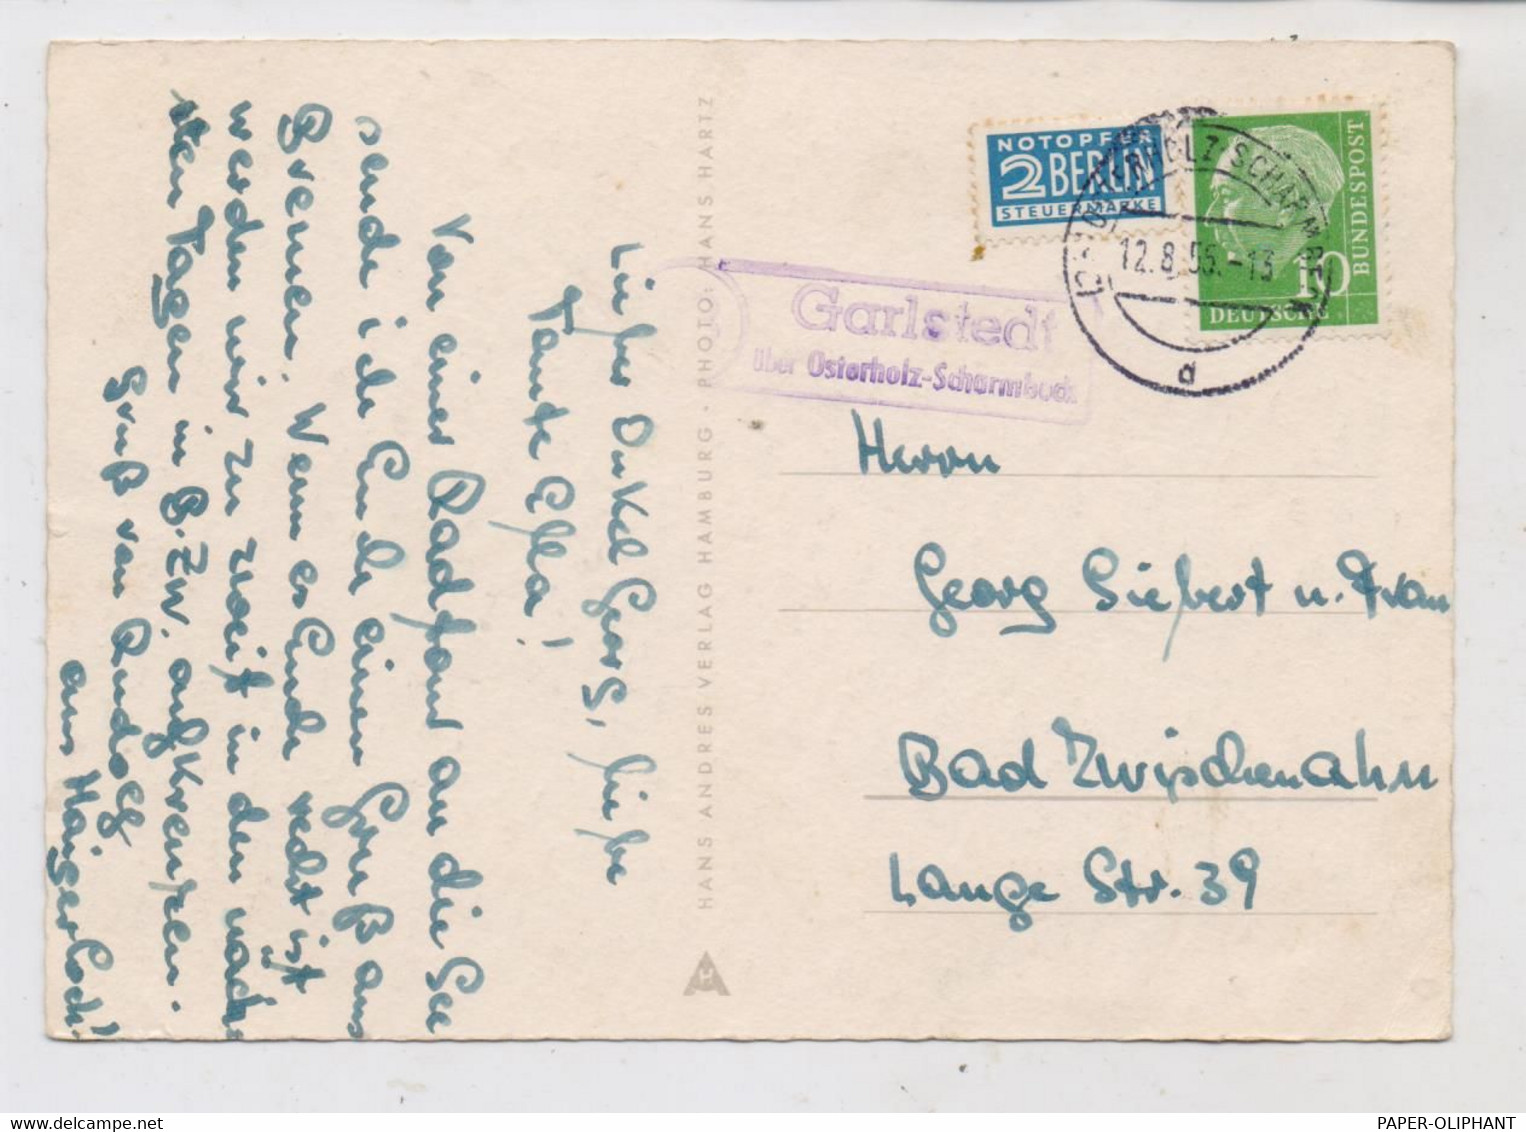 Lieber Onkel Georg, liebe
Tante Ella!
Von einer Radfahrt an die See
sende ich Euch einen Gruß aus
Bremen. Wenn es Euch recht ist
werden wir zu zweit in den näch-
sten Tagen in B.ZW. aufkreuzen.
Gruß von Rudolf
aus Haigerloch!
HANS ANDRES VERLAG HAMBURG · PHOTO: HANS HARTZ
NOTOPFER
2 BERLIN
STEUERMARKE
OSTERHOLZ-SCHARMBECK
12.8.55.-13
d
DEUTSCHE
BUNDESPOST
10
Garlstedt
über Osterholz-Scharmbeck
Herrn
Georg Siefert u. Frau
Bad Zwischenahn
Lange Str. 39
PAPER-OLIPHANT
delcampe.net